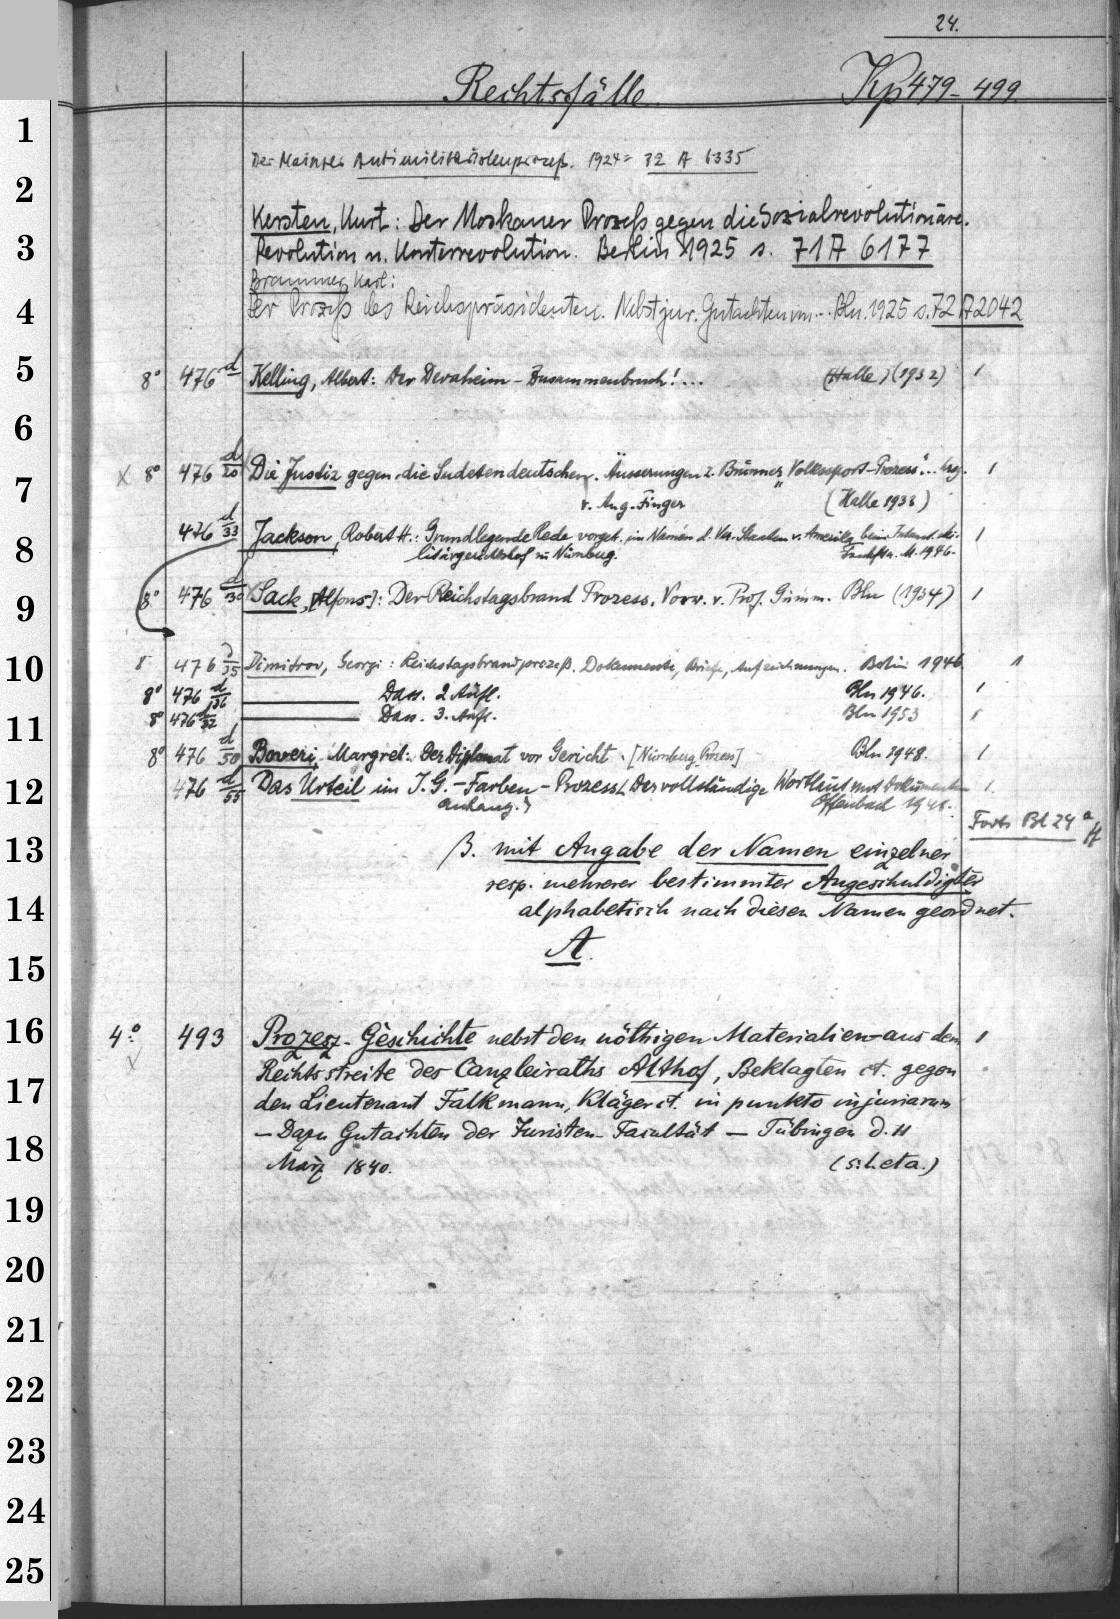 24.
Rechtsfälle. Kp 479-499
1
Der Mainzer Antimilitaristenprozeß. 1924 = 32 A 6335
2
Kersten, Kurt: Der Moskauer Prozeß gegen die Sozialrevolutionäre.
3 Revolution u. Konterrevolution. Berlin 1925 s. 71 A 6177
Brammer, Karl:
4 Der Prozeß des Reichspräsidenten. Nebst jur. Gutachten von... Bln. 1925 s. 72 A 2042
5 8° 476 d Kelling, Albert: Der Devaheim-Zusammenbruch!... (Halle) (1932) 1
6
x 8° 476 d/20 Die Justiz gegen die Sudetendeutschen. Äusserungen z. Brünner "Volkssport-Prozess"... hrsg. 1
7 v. Aug. Finger (Halle 1933)
476 d/33 Jackson, Robert H.: Grundlegende Rede vorget. im Namen d. Ver. Staaten v. Amerika beim Internat. Mi- 1
8 litärgerichtshof zu Nürnberg. Frankft. M. 1946.
9 8° 476 d/30 Sack, [Alfons]: Der Reichstagsbrand Prozess. Vorw. v. Prof. Grimm. Bln (1934) 1
10 8° 476 d/35 Dimitrov, Georgi: Reichstagsbrandprozeß. Dokumente, Briefe, Aufzeichnungen. Berlin 1946 1
8° 476 d/36 Dass. 2. Aufl. Bln 1946. 1
11 8° 476 d/37 Dass. 3. Aufl. Bln 1953 1
8° 476 d/50 Boveri, Margret: Der Diplomat vor Gericht. [Nürnberg. Prozess] Bln 1948. 1
12 476 d/55 Das Urteil im I.G.-Farben-Prozess. Der vollständige Wortlaut mit Dokumenten 1.
anhang. Offenbach 1948.
Forts Bl 24 a ff
13 β. mit Angabe der Namen einzelner
resp. mehrerer bestimmter Angeschuldigter
14 alphabetisch nach diesen Namen geordnet.
A.
15
16 4° 493 Prozesz-Geschichte nebst den nöthigen Materialien aus dem 1
Rechtsstreite des Canzleiraths Althof, Beklagten ct. gegen
17 den Lieutenant Falkmann, Kläger ct. in punkto injuriarum
— Dazu Gutachten der Juristen-Facultät — Tübingen d. 11
18 März 1840. (s. l. et a.)
19
20
21
22
23
24
25